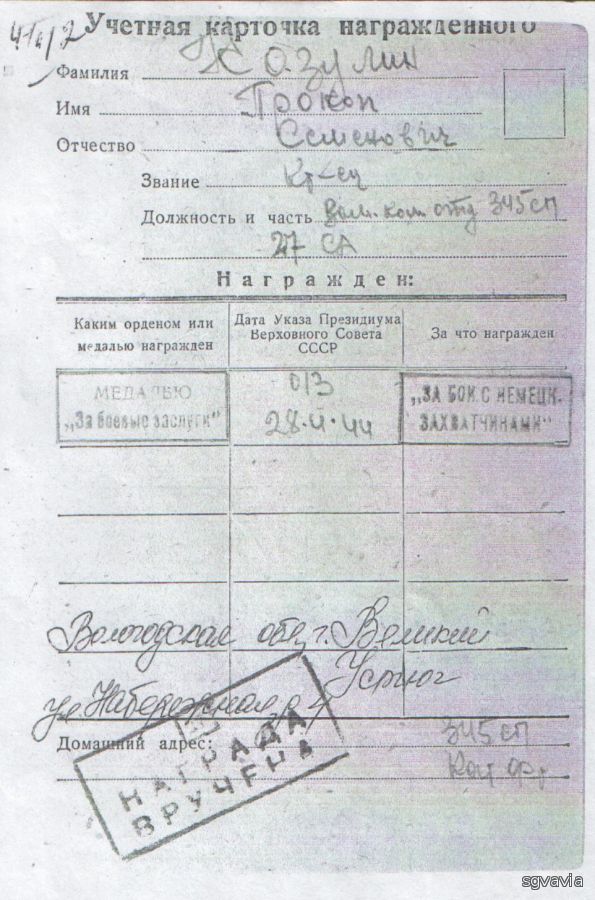 Учетная карточка награжденного
Фамилия Козулин
Имя Прокоп
Отчество Семенович
Звание Кр-ец
Должность и часть ком. отд 345 СП
27 СА
Награжден:
Каким орденом или медалью награжден
Дата Указа Президиума Верховного Совета СССР
За что награжден
МЕДАЛЬЮ „За боевые заслуги"
013 28.
„ЗА БОИ С НЕМЕЦК. ЗАХВАТЧИНАМИ"
Вологодская обл г. Великий
Устюг
ул. Набережная д 4
Домашний адрес: 345 сп
НАГРАДА
ВРУЧЕНА
sgvavia